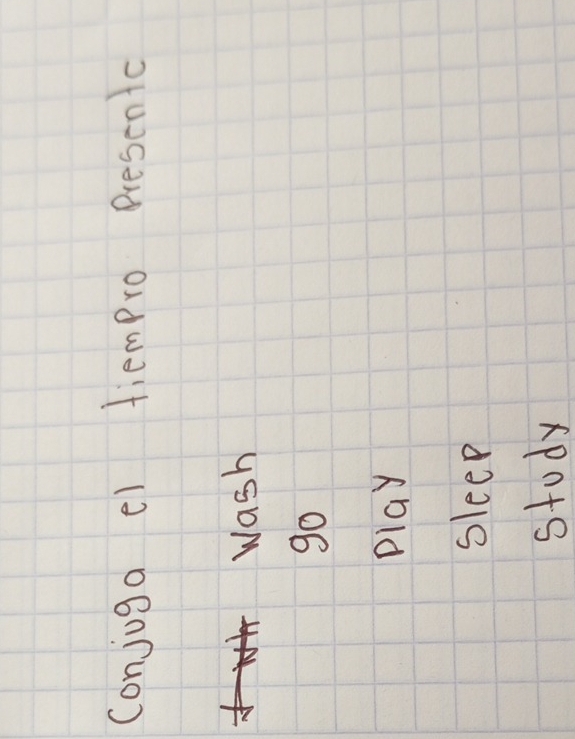 Conjuga el tiempro presente
wash
go
play
sleep
study